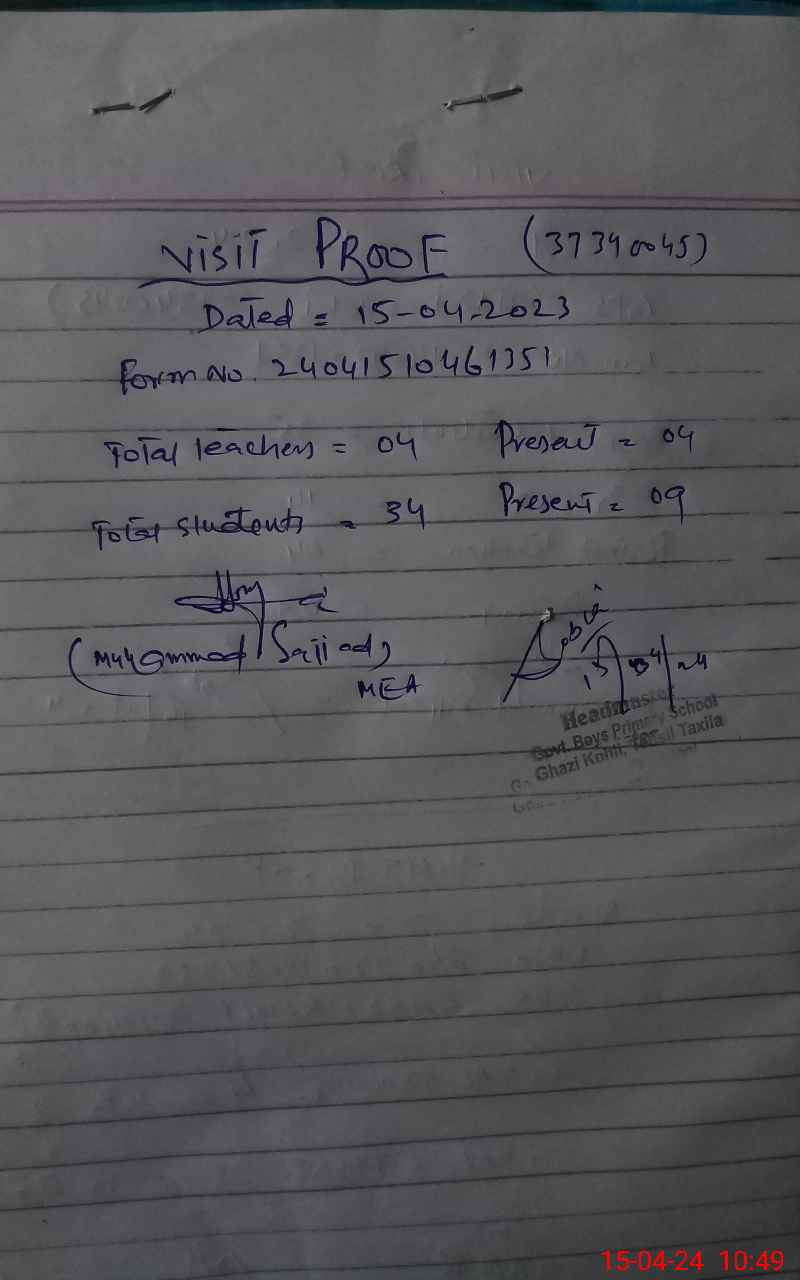 VISIT PROOF (37340045)
Dated = 15-04-2023
Form No. 24041510461351
Total Teachers = 04 Present = 04
Total Students = 34 Present = 09
(Muhammad Sajjad)
MEA
15/04/24
Headmaster
Govt. Boys Primary School
Ghazi Kohli, Tehsil Taxila
15-04-24 10:49